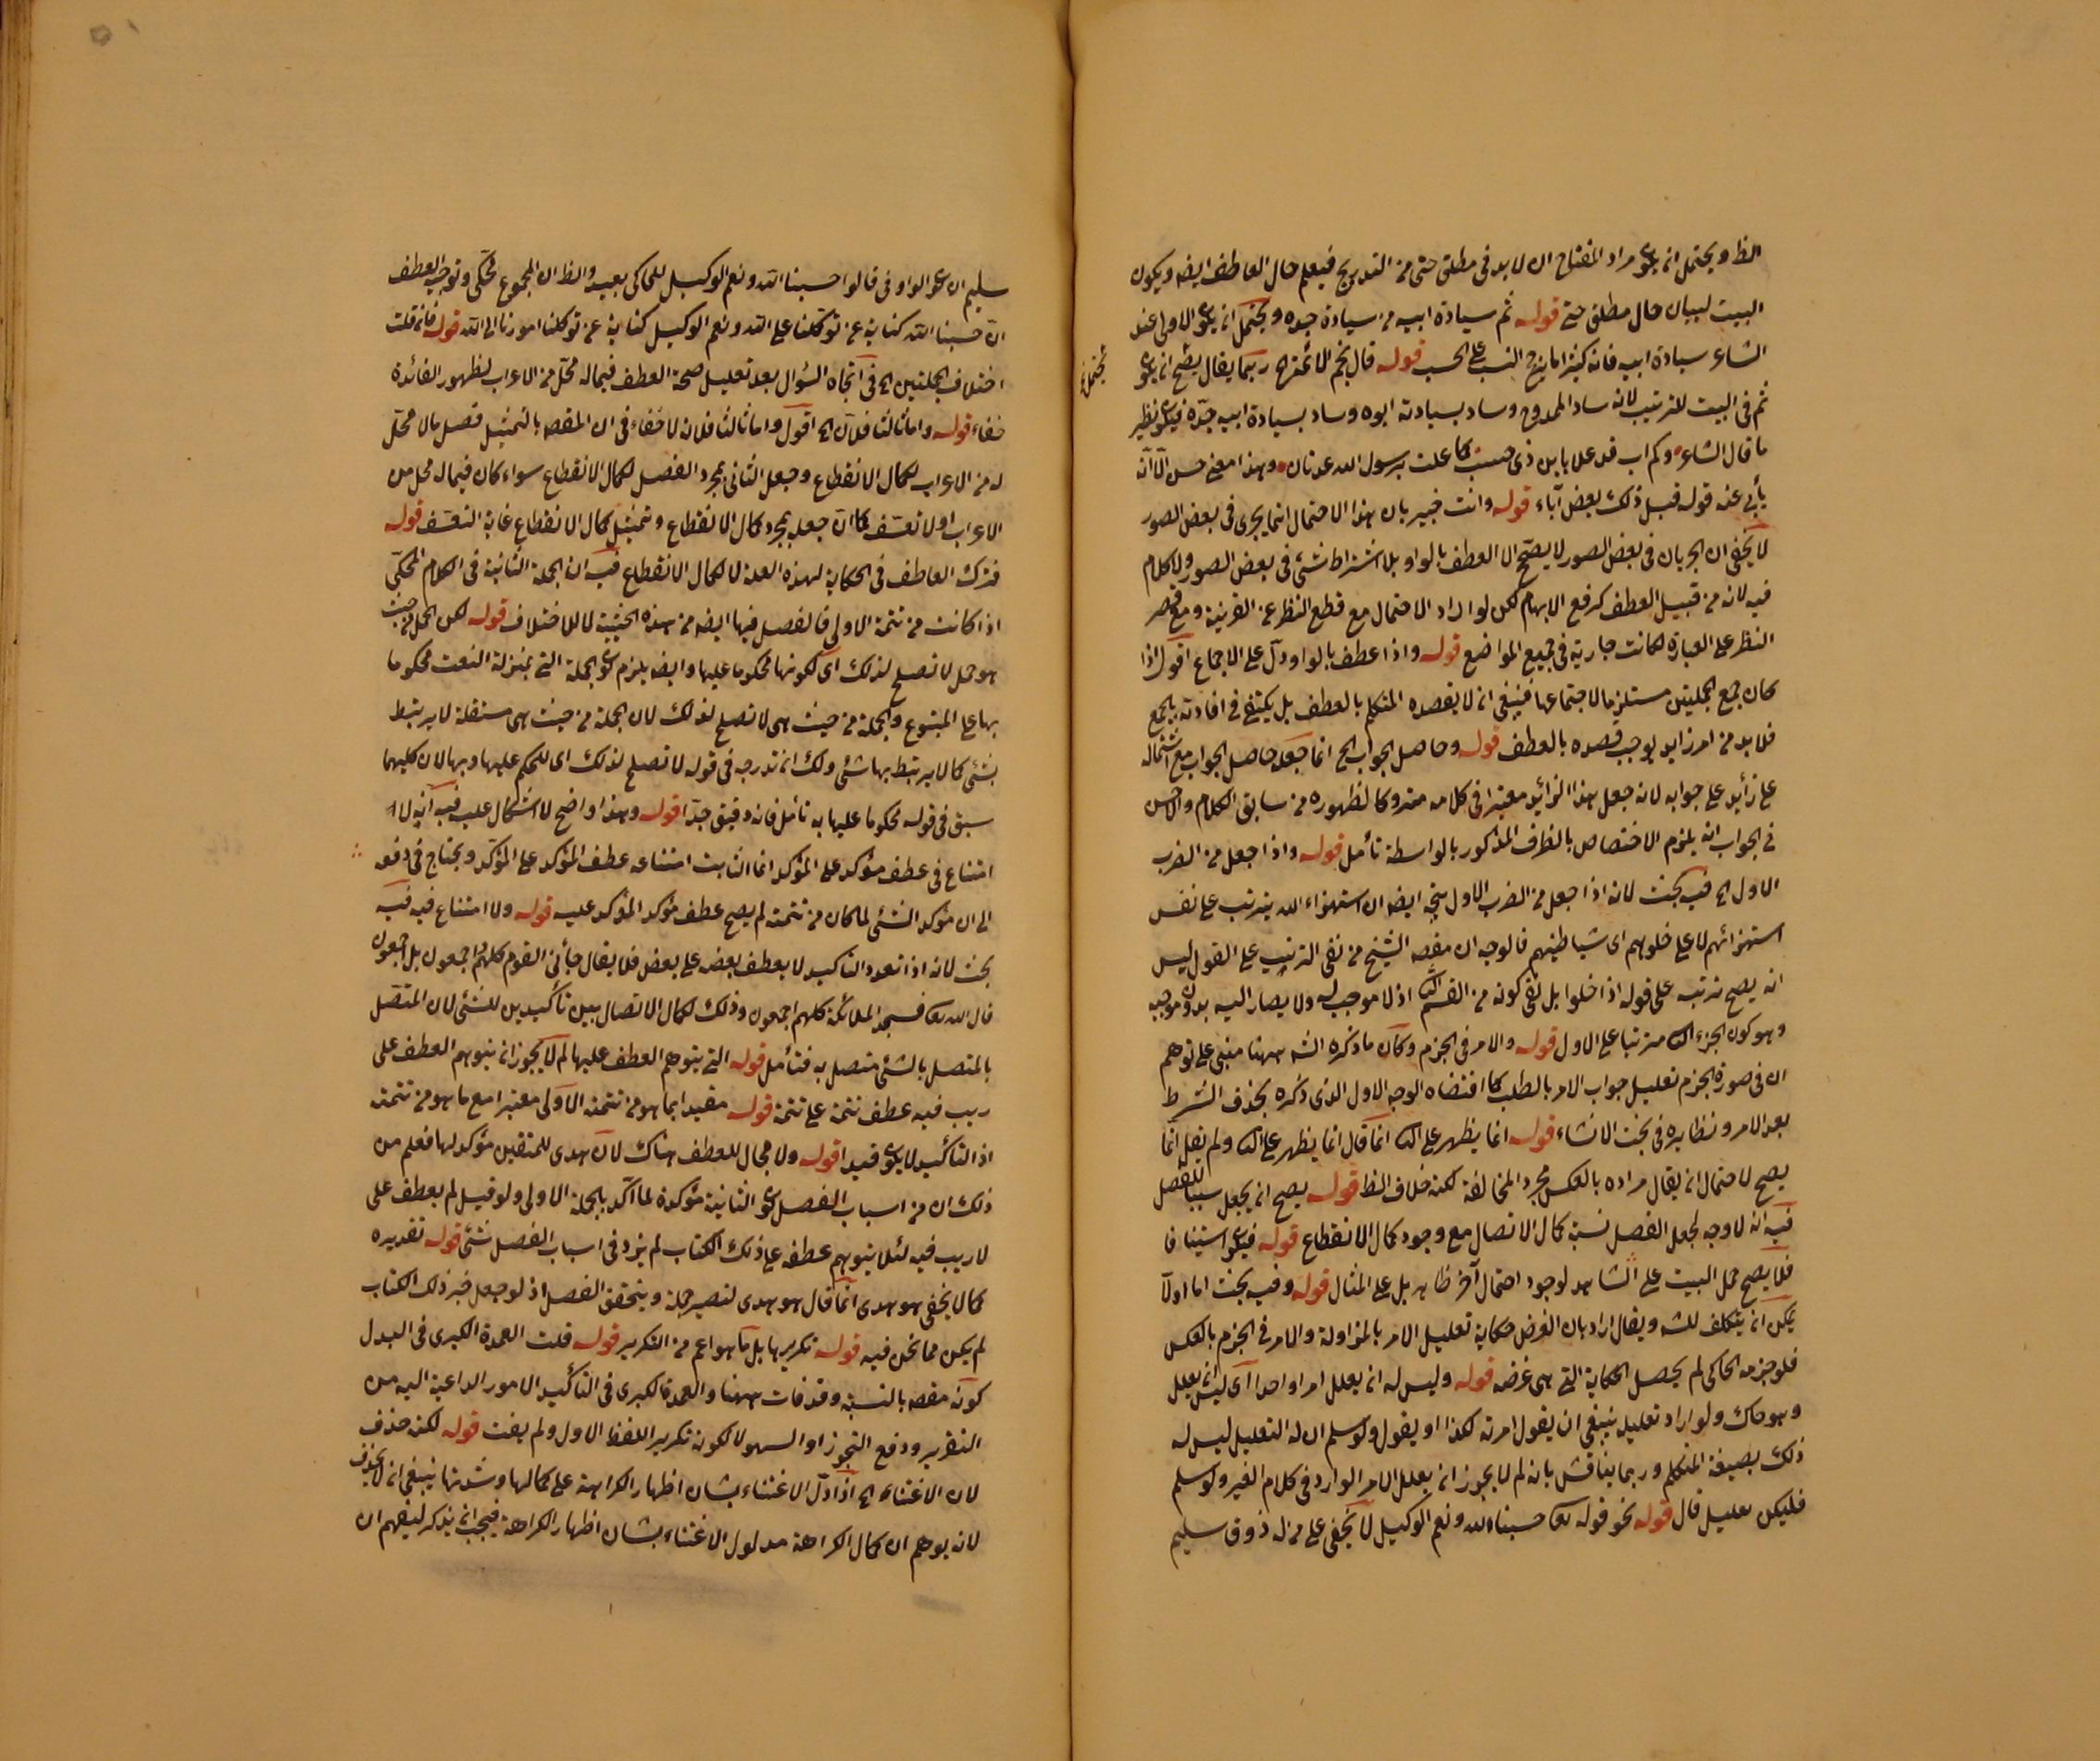 الظ ويحتمل ان يكون مراد المفتاح ان لا بد في مطلق حتى من التدريج فيعلم حال العاطف ايضا ويكون
البيت لبيان حال مطلق حتى قوله ثم سيادة ابيه من سيادة جده ويحتمل ان يكون الاولى عند
الشاعر سيادة ابيه فانه كثيرا ما يرجح النسب على الحسب قوله قال نجم الائمة الخ ربما يقال يصح ان يكون
يحتمل
ثم في البيت للترتيب لانه ساد الممدوح وساد بسيادته ابوه وساد بسيادة ابيه جده فيكون نظير
ما قال الشاعر وكم اب قد علا بابن ذى حسب كما علت برسول الله عدنان وهذا معنى حسن الا انه
يأبى عنه قوله قبل ذلك بعض آباء قوله وانت خبير بان هذا الاحتمال انما يجرى في بعض الصور
لا يخفى ان الجريان في بعض الصور لا يصحح الا العطف بالواو بلا اشتراط شئ في بعض الصور ولا كلام
فيه لانه من قبيل العطف كرفع الابهام لكن لو اراد الاحتمال مع قطع النظر عن القرينة ومع قصر
النظر على العبارة لكانت جارية في جميع المواضع قوله واذا عطف بالواو دل على الاجماع اقول اذا
كان جمع الجملتين مستلزما لاجتماعها فينبغي ان لا يقصده المتكلم بالعطف بل يكتفي في افادته بالجمع
فلا بد من امر زايد يوجب قصده بالعطف قوله وحاصل الجواب الخ انما جعله حاصل الجواب مع اشتماله
على زايد على جوابه لانه جعل هذا الزائد معتبرا في كلامه متروكا لظهوره من سابق الكلام والاحسن
في الجواب انه يلزم الاختصاص بالظرف المذكور بالواسطة تأمل قوله واذا جعل من الضرب
الاول الخ فيه بحث لانه اذا جعل من الضرب الاول يتجه ايضا ان استهزاء الله يترتب على نفس
استهزائهم لا على خلوهم اى شياطينهم فالوجه ان مقصد الشيخ من نفي الترتيب على القول ليس
انه يصح ترتبه على قوله اذا خلوا بل نفي كونه من القسم اذ لا موجب له ولا يصار اليه بدون موجبه
وهو كون الجزاء مترتبا على الاول قوله والامر في الجزم وكان ما ذكره الشه ههنا مبنى على توهم
ان في صورة الجزم تعليل جواب الامر بالطلب كما اقتضاه الوجه الاول الذى ذكره بحذف الشرط
بعد الامر ونظايره في بحث الانشاء قوله انما يظهر على انما قال انما يظهر على ولم يقل انما
يصح لاحتمال ان يقال مراده بالعكس مجرد المخالفة لكنه خلاف الظ قوله يصح ان يجعل سببا للفصل
فيه انه لا وجه لجعل الفصل نسبة كمال الاتصال مع وجود كمال الانقطاع قوله فيكون استينافا
فلا يصح حمل البيت على الشاهد لوجود احتمال آخر ظاهر بل على المثال قوله وفيه بحث اما اولا
يمكن ان يتكلف للشه ويقال اراد بان الغرض حكاية تعليل الامر بالمزاولة والامر في الجزم بالعكس
فلو جزمه الحاكى لم يحصل الحكاية التي هي غرضه قوله وليس له ان يعلل امرا واحدا اى ليس ان يعلل
وهو حاك ولو اراد تعليله ينبغي ان يقول امرته لكذا او يقول ولو سلم ان له التعليل ليس له
ذلك بصيغة المتكلم وربما يناقش بانه لم لا يجوز ان يعلل الامر الوارد في كلام الغير ولو سلم
فليكن تعليل قال قوله نحو قوله تع حسبنا الله ونعم الوكيل لا يخفى على من له ذوق سليم
سليم ان كون الواو في قالوا حسبنا الله ونعم الوكيل للحاكى بعيد والظ ان المجموع محكي وتوجيه العطف
ان حسبنا الله كناية عن توكلنا على الله ونعم الوكيل كناية عن توكلنا امورنا الى الله قوله فان قلت
اختلاف الجملتين الخ في اتجاه السؤال بعد تعليل صحة العطف فيما له محل من الاعراب لظهور الفائدة
خفاء قوله واما ثالثا فلان الخ اقول واما ثالثا فلانه لا خفاء في ان المقصد بالتمثيل فصل ما لا محل
له من الاعراب لكمال الانقطاع وجعل الثاني بمجرد الفصل لكمال الانقطاع سواء كان فيما له محل من
الاعراب او لا تعسف كما ان جعله بمجرد كمال الانقطاع وتمثيل كمال الانقطاع غاية التعسف قوله
فترك العاطف في الحكاية لهذه العلة لا لكمال الانقطاع فيه ان الجملة الثانية في الكلام المحكى
اذا كانت من تتمة الاولى فالفصل فيها ايضا من هذه الحيثية لا للاختلاف قوله لكن الجمل من حيث
هو جمل لا تصلح لذلك اى لكونها محكوما عليها وايضا يلزم كون الجملة التي بمنزلة النعت محكوما
بها على المتبوع والجملة من حيث هي لا تصلح لذلك لان الجملة من حيث هي مستقلة لا يرتبط
بشئ كما لا يرتبط بها شئ ولك ان تدرجه في قوله لا تصلح لذلك اى للحكم عليها وبها لان كليهما
سبق في قوله محكوما عليها به تأمل فانه دقيق جدا قوله وهذا واضح لا اشكال عليه فيه انه لا
امتناع في عطف مؤكد على المؤكد انما الثابت امتناعه عطف المؤكد على المؤكد ويحتاج في دفعه
الى ان مؤكد الشئ لما كان من تتمته لم يصح عطف مؤكد المؤكد عليه قوله ولا امتناع فيه فيه
بحث لانه اذا تعدد التأكيد لا يعطف بعضه على بعض فلا يقال جاءنى القوم كلهم واجمعون بل اجمعون
قال الله تع فسجد الملائكة كلهم اجمعون وذلك لكمال الاتصال بين تأكيدين للشئ لان المتصل
بالمتصل بالشئ متصل به فتأمل قوله التي يتوهم العطف عليها لم لا يجوز ان يتوهم العطف على
ريب فيه عطف تتمة على تتمة قوله مقيدا بما هو من تتمة الاولى معتبرا مع ما هو من تتمته
اذ التأكيد لا يكون قيدا قوله ولا مجال للعطف هناك لان هدى للمتقين مؤكد لها فعلم من
ذلك ان من اسباب الفصل كون الثانية مؤكدة لما اكد بالجملة الاولى ولو قيل لم يعطف على
لا ريب فيه لئلا يتوهم عطفه على ذلك الكتاب لم يزد في اسباب الفصل شئ قوله تقديره
كما لا يخفى هو هدى انما قال هو هدى لتصير جملة ويتحقق الفصل اذ لو جعل خبر ذلك الكتاب
لم يكن مما نحن فيه قوله تكريرها بل ما هو اعم من التكرير قوله قلت العمدة الكبرى في البدل
كونه مقصد بالنسبة وقد فات ههنا والعمدة الكبرى في التأكيد الامور الداعية اليه من
التقرير ودفع التجوز او السهو لا لكونه تكرير اللفظ الاول ولم يفت قوله لكنه حذف
لان الاغتناء الخ اذا دل الاغتناء بشان اظهار الكراهة على كمالها وشدتها ينبغي ان لا يحذف
لانه يوهم ان كمال الكراهة مدلول الاغتناء بشان اظهار الكراهة فيجب ان يذكر ليفهم ان